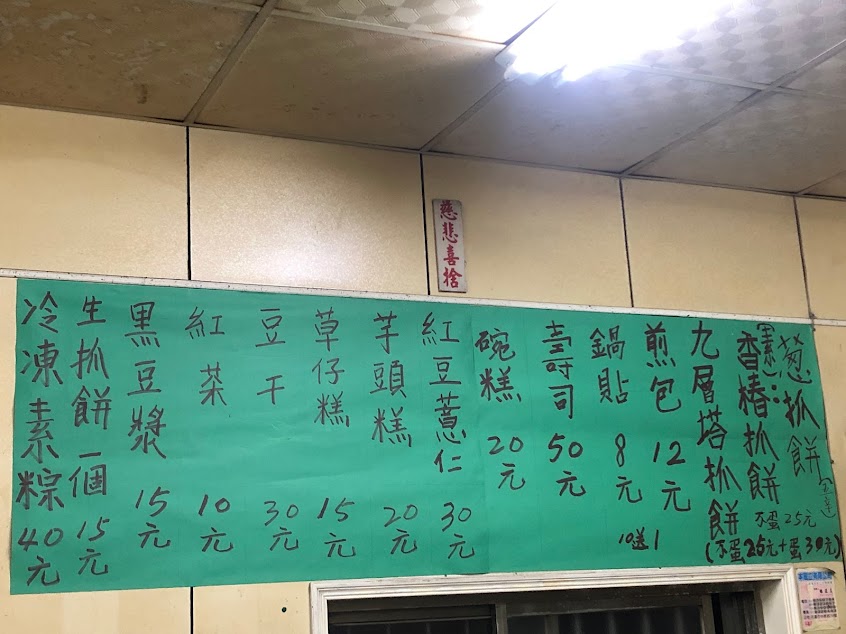 慈悲喜捨
葱抓餅
(五辛)
素:
香椿抓餅
不蛋25元
九層塔抓餅
(不蛋25元+蛋30元)
煎包12元
鍋貼8元
10送1
壽司50元
碗糕20元
紅豆薏仁30元
芋頭糕20元
草仔糕15元
豆干30元
紅茶10元
黑豆漿15元
生抓餅一個15元
冷凍素粽40元